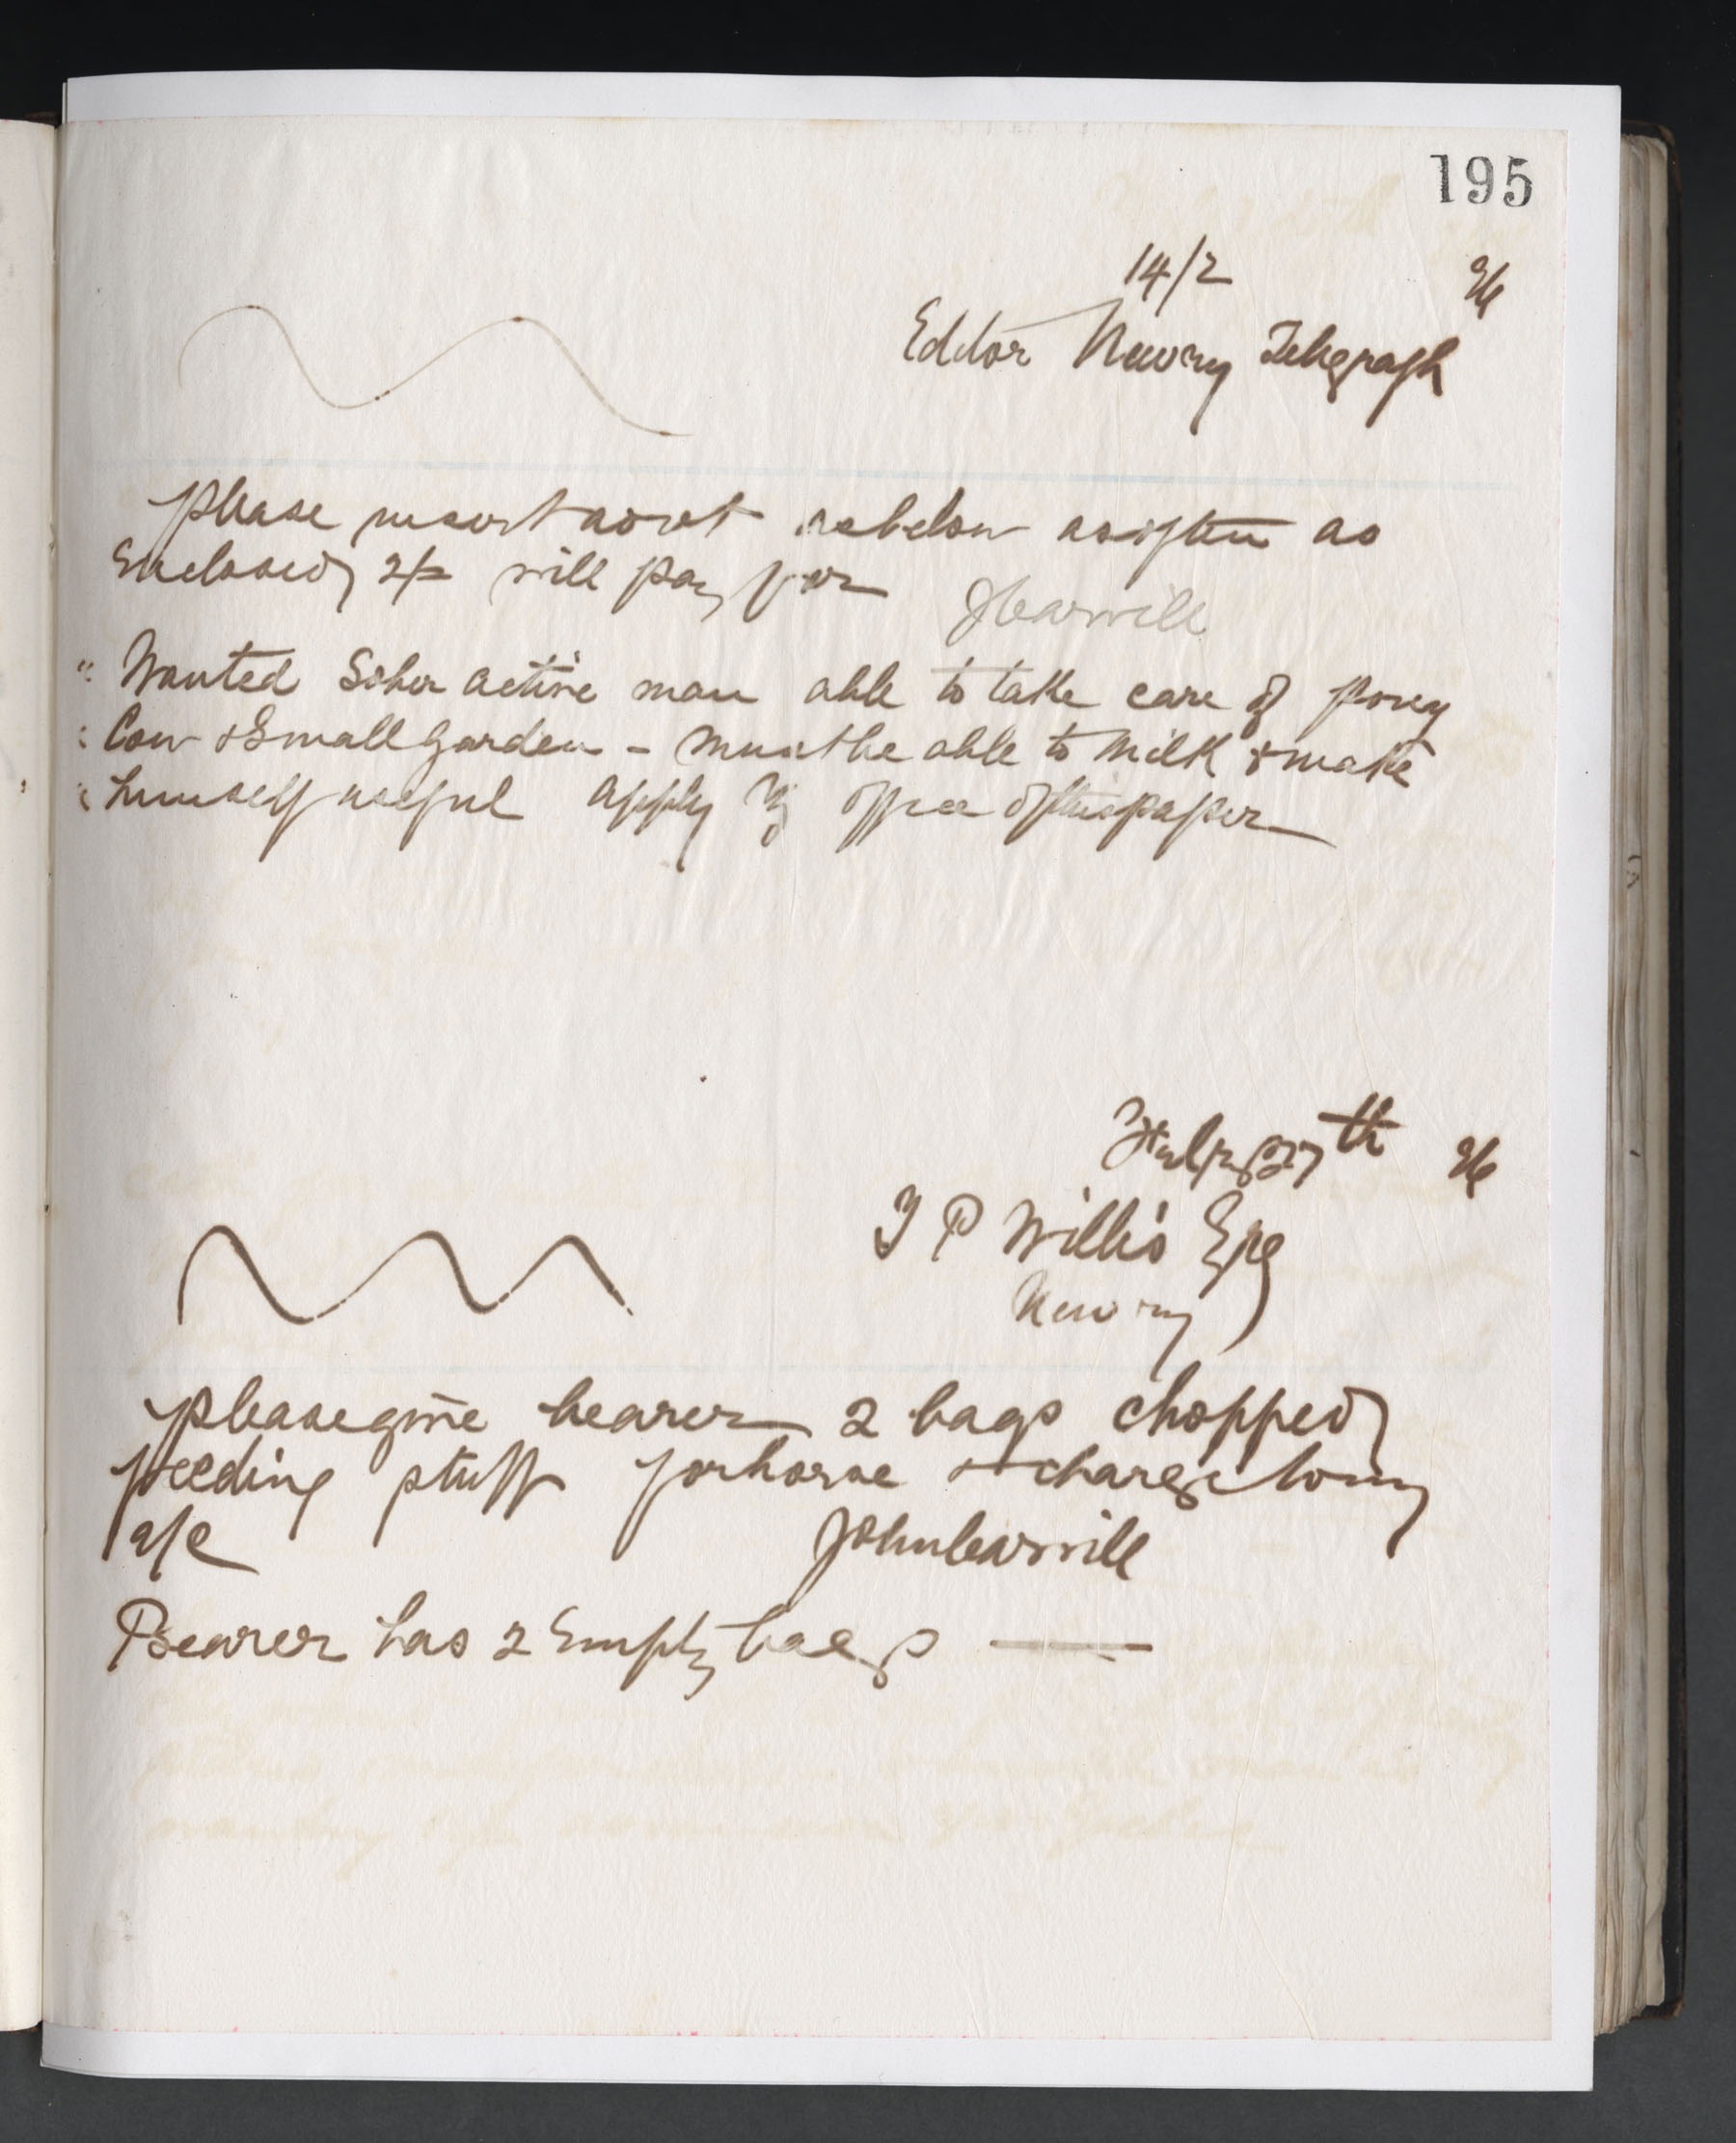 195
14/2 96
Editor Newry Telegraph
Please insert advt as below as often as
Enclosed 2/= will pay for JCarvill
" Wanted Sober active man able to take care of pony
" Cow & Small Garden - must be able to milk & make
" himself useful apply office of this paper
Feby 27th 96
J P Willis Esq
Newry
Please give bearer 2 bags chopped
feeding stuff for horse & charge to my
a/c John Carvill
Bearer has 2 Empty bags